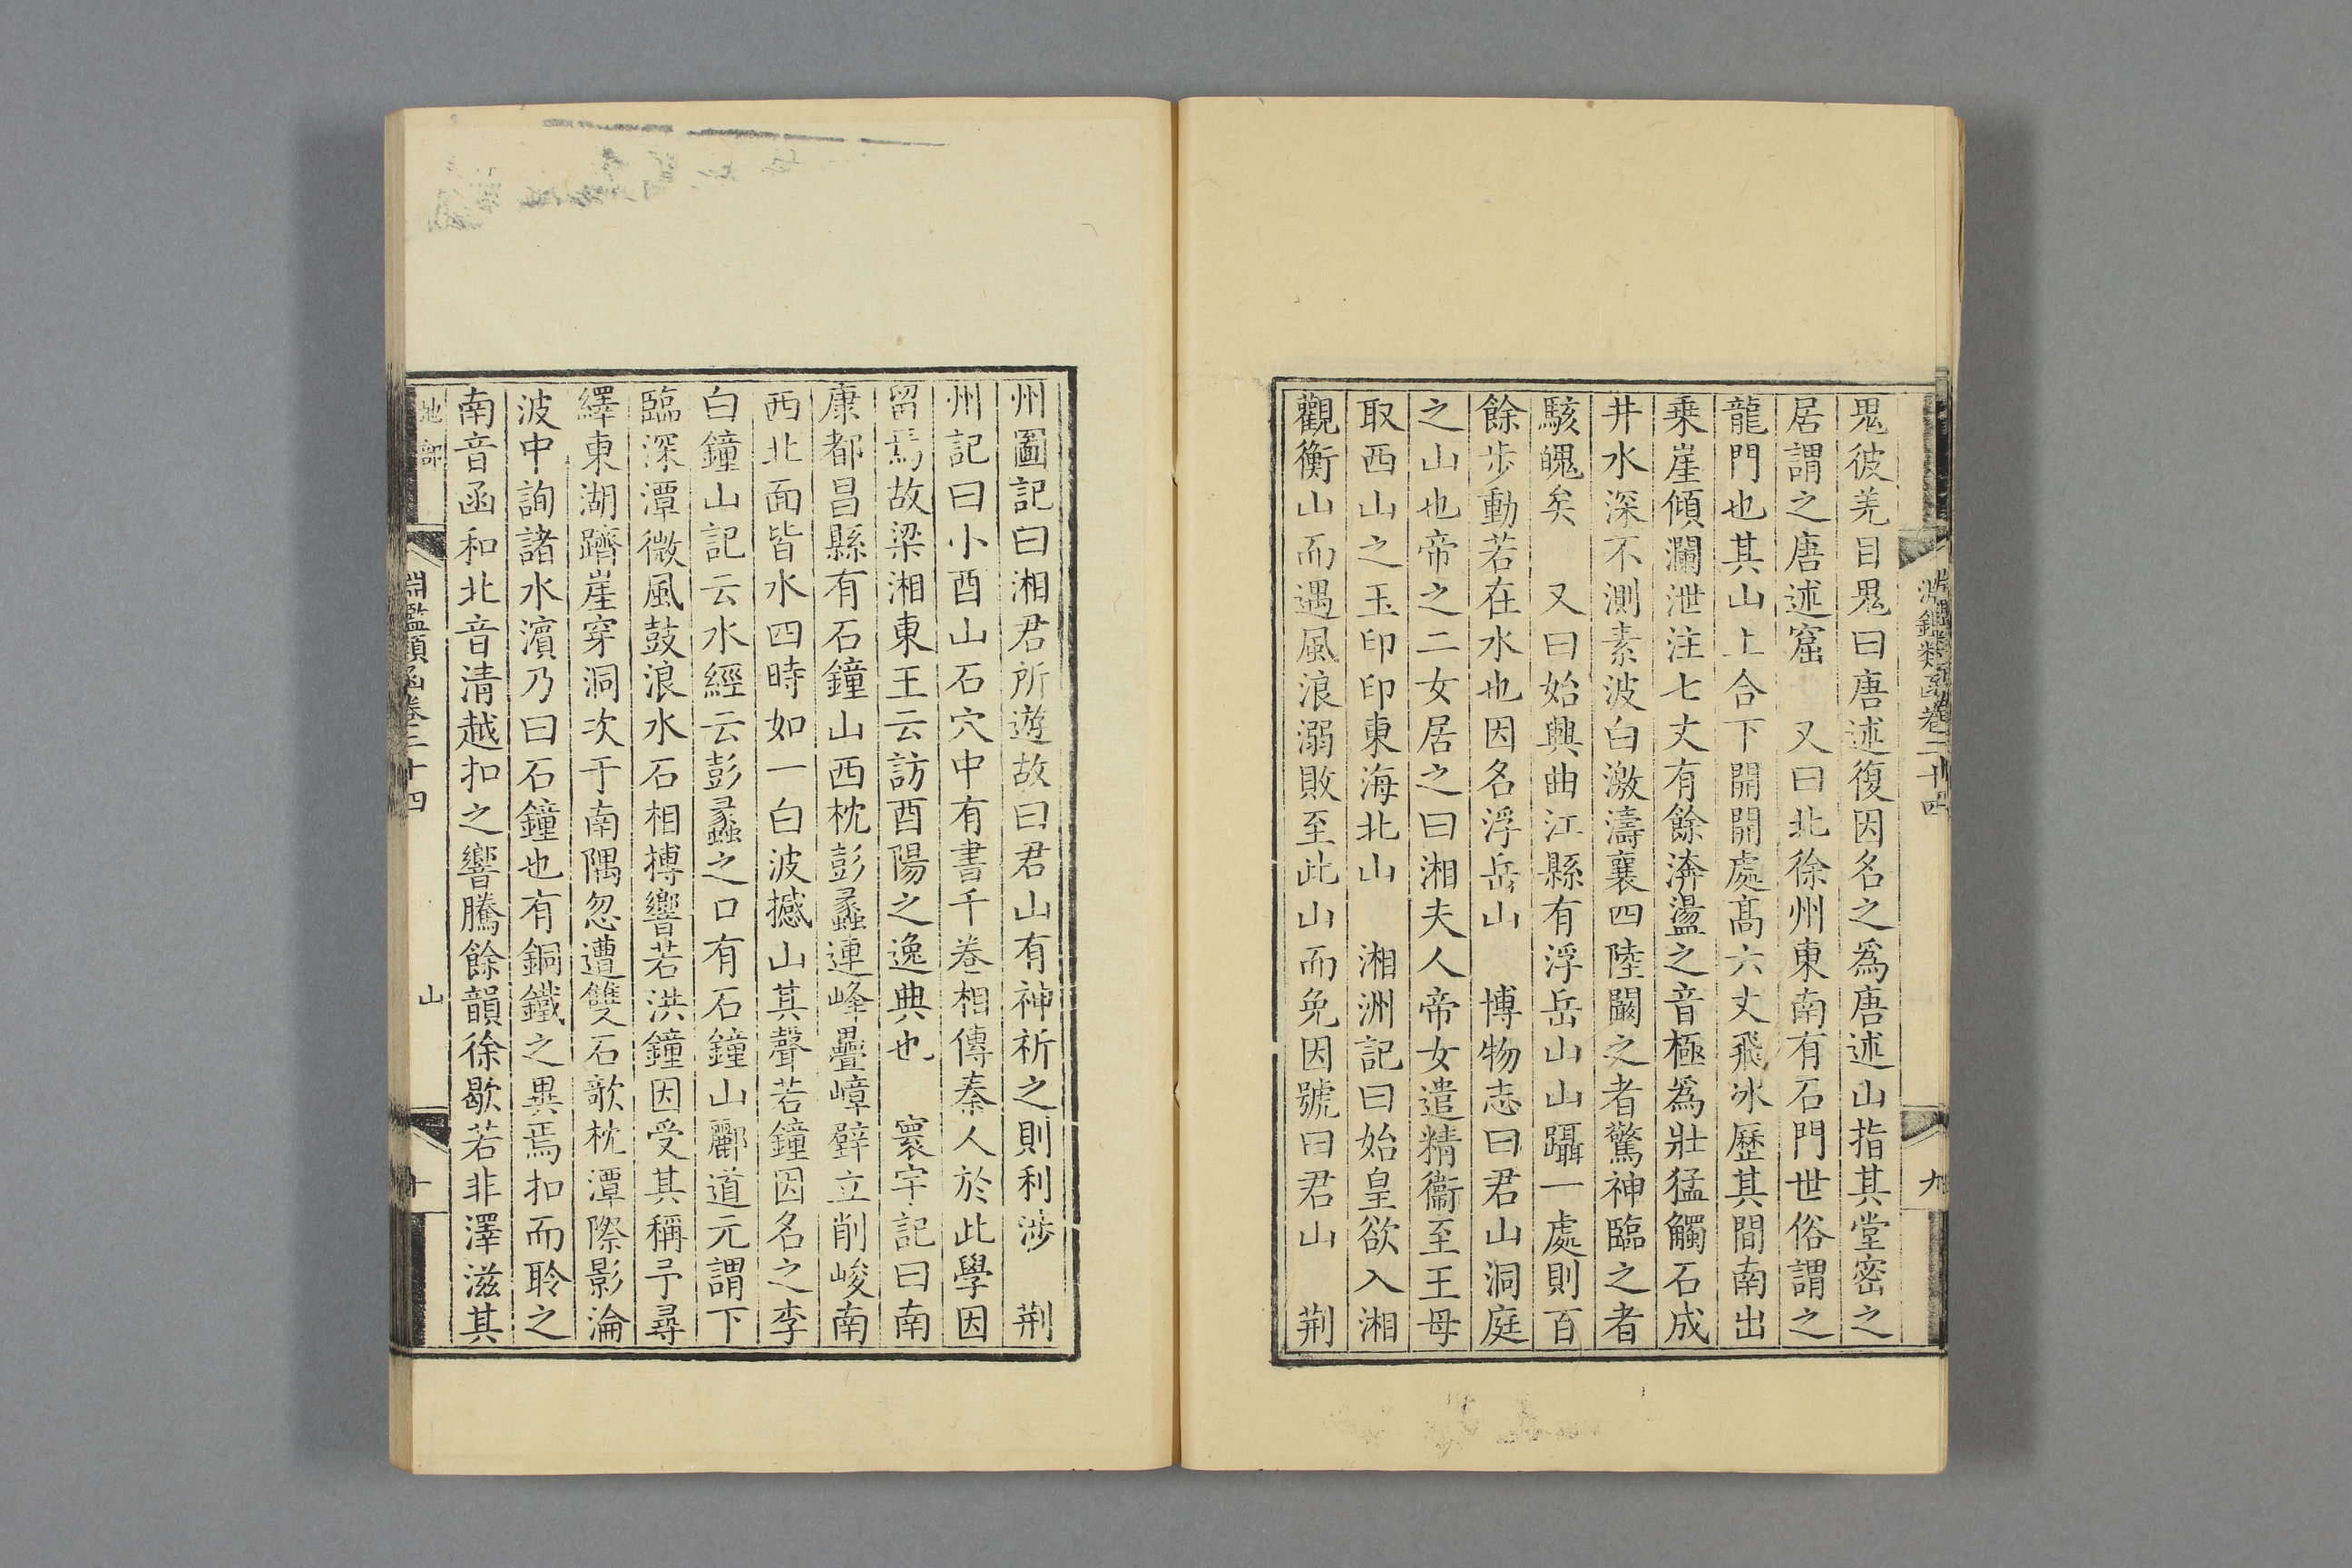 淵鑑類函卷二十四
九
鬼彼羌目鬼曰唐述復因名之爲唐述山指其堂密之
居謂之唐述窟　又曰北徐州東南有石門世俗謂之
龍門也其山上合下開開處髙六丈飛水歷其間南出
乗崖傾瀾泄注七丈有餘渀盪之音極爲壯猛觸石成
井水深不測素波白激濤襄四陸闞之者驚神臨之者
駭魄矣　又曰始興曲江縣有浮岳山山躡一處則百
餘歩動若在水也因名浮岳山　博物志曰君山洞庭
之山也帝之二女居之曰湘夫人帝女遣精衞至王母
取西山之玉印印東海北山　湘洲記曰始皇欲入湘
觀衡山而遇風浪溺敗至此山而免因號曰君山　荆
州圖記曰湘君所遊故曰君山有神祈之則利涉　荆
州記曰小酉山石穴中有書千卷相傳秦人於此學因
留焉故梁湘東王云訪酉陽之逸典也　寰宇記曰南
康都昌縣有石鐘山西枕彭蠡連峰疊嶂壁立削峻南
西北面皆水四時如一白波撼山其聲若鐘因名之李
白鐘山記云水經云彭蠡之口有石鐘山酈道元謂下
臨深潭微風鼓浪水石相搏響若洪鐘因受其稱予尋
繹東湖躋崖穿洞次于南隅忽遭雙石欹枕潭際影淪
波中詢諸水濱乃曰石鐘也有銅鐵之異焉扣而聆之
南音函和北音清越扣之響騰餘韻徐歇若非澤滋其
地部
淵鑑類函卷二十四
山
十